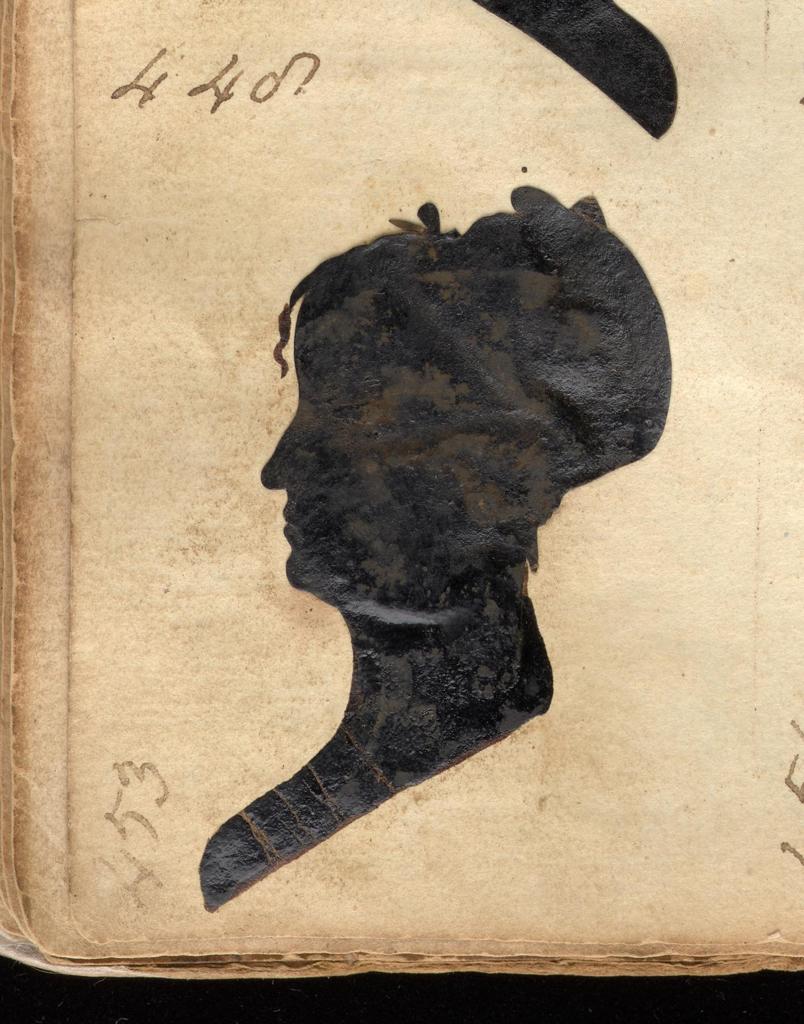 448
453